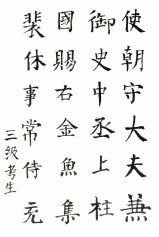 使朝守大夫兼
御史中丞上柱
國賜右金魚集
裴休事常侍充
三级考生